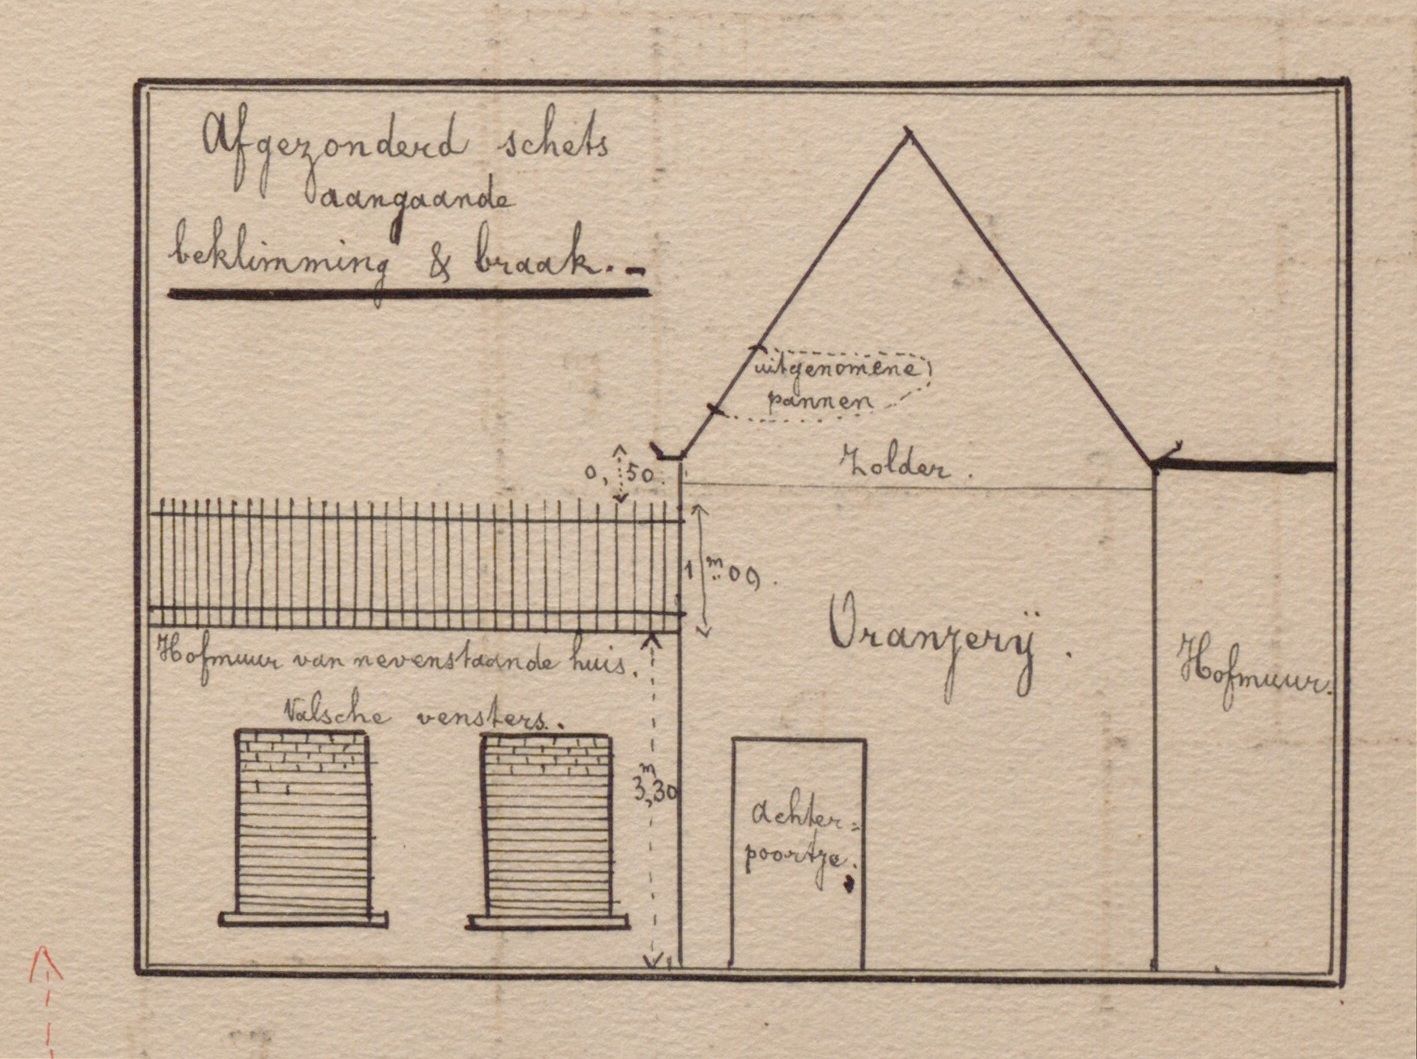 Afgezonderd schets
aangaande
beklimming & braak. -
uitgenomene
pannen
0,50.
Zolder.
1 m 00.
Oranjerij.
Hofmuur van nevenstaande huis.
Hofmuur.
Valsche vensters.
3,m30
achter=
poortje.